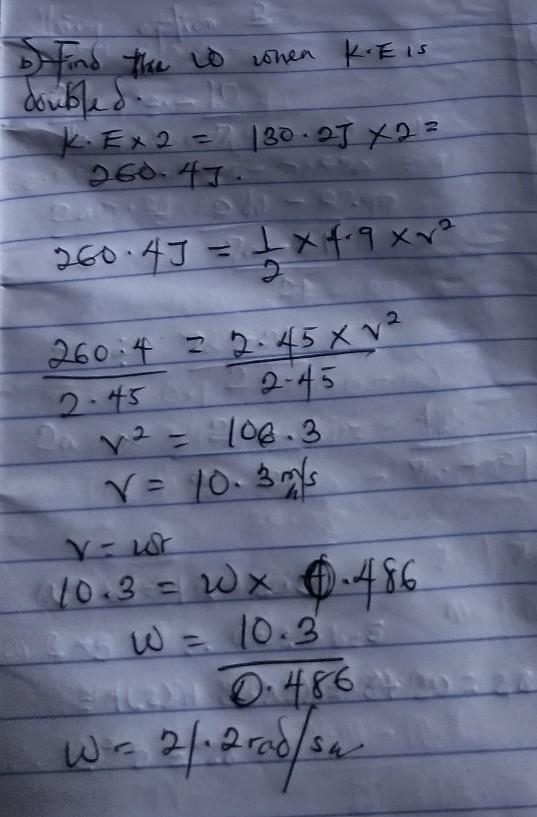 b) Find the ω when K.E is
doubled.
K.E x 2 = 130.2J x 2 =
260.4J.
260.4J = 1/2 x 4.9 x v²
260.4/2.45 = 2.45 x v²/2.45
v² = 106.3
v = 10.3 m/s
v = ωr
10.3 = ω x 0.486
ω = 10.3/0.486
ω = 21.2 rad/s